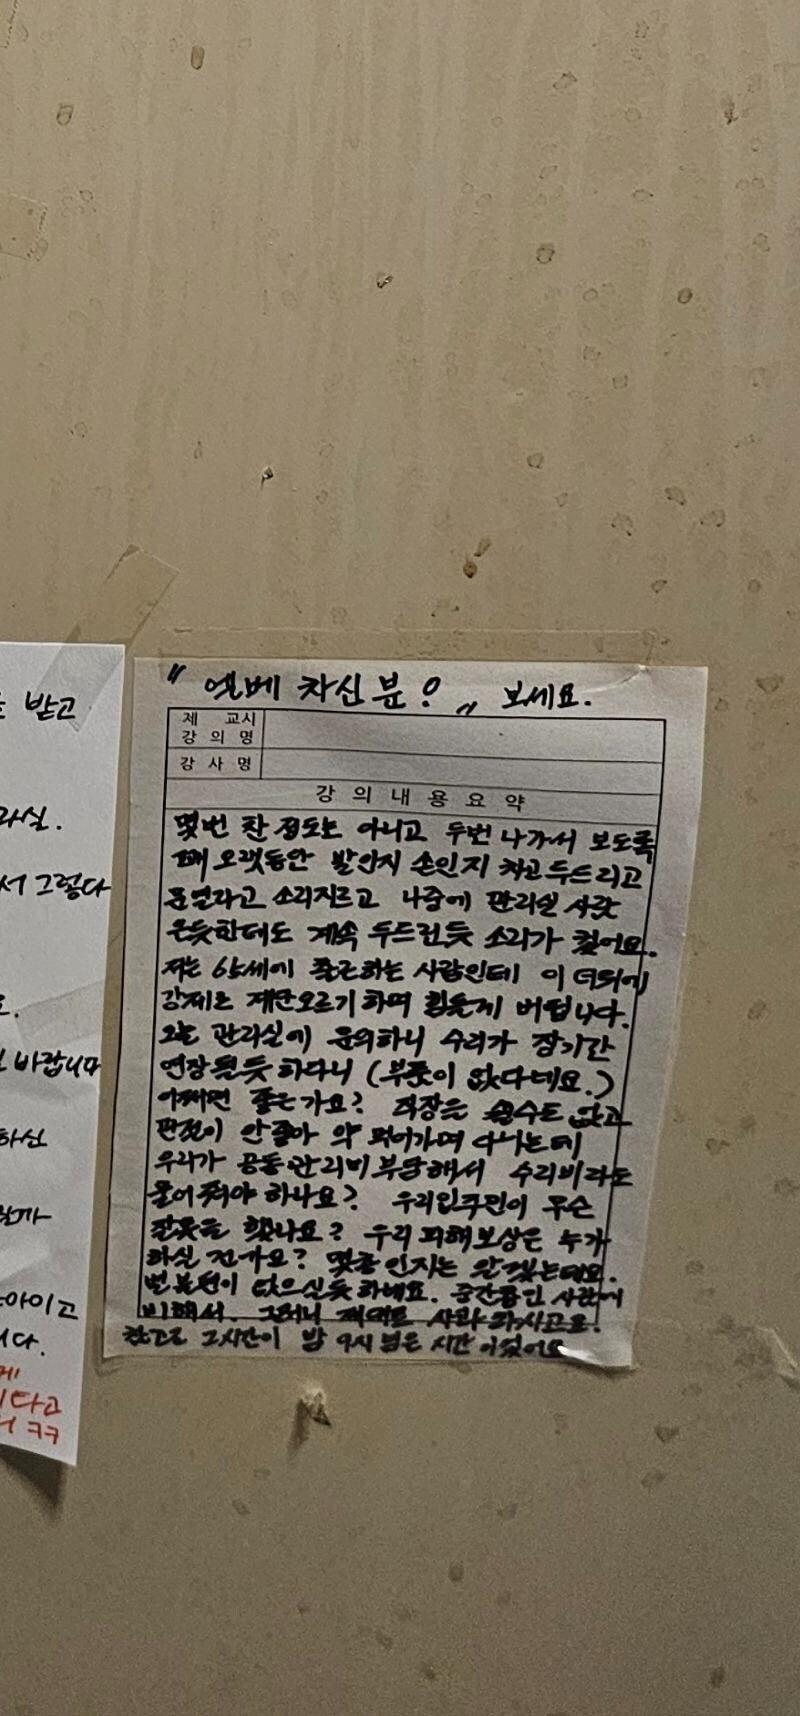 받고
서 그렇다
바랍니다
하신
아이고
니다.
다고
ㅋㅋ
" 엘베 차신 분? " 보세요.
제 교시
강 의 명
강 사 명
강 의 내 용 요 약
몇번 찬 정도는 아니고 두번 나가서 보도록
꽤 오랫동안 발인지 손인지 차고 두드리고
문열라고 소리지르고 나중에 관리실 사람
온듯한데도 계속 두드린듯 소리가 컸어요.
저는 65세에 출근하는 사람인데 이 더위에
강제로 계단오르기 하며 힘들게 버팁니다.
오늘 관리실에 문의하니 수리가 장기간
연장될듯 하다니 (부품이 없다네요.)
어쩌면 좋은가요? 직장을 쉴수도 없고
관절이 안좋아 약 먹어가며 다니는데
우리가 공동관리비 부담해서 수리비라도
물어 줘야 하나요? 우리입주민이 무슨
잘못을 했나요? 우리 피해보상은 누가
하실 건가요? 몇층 인지는 알겠는데요.
별 불편이 없으신듯 하네요. 중간층인 사람에
비해서. 그러니 제대로 사과 하시고요.
참고로 그시간이 밤 9시 넘은 시간 이었어요